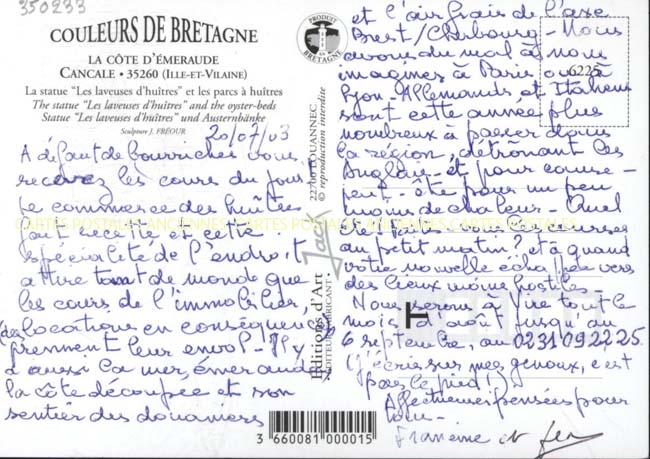 350233
COULEURS DE BRETAGNE
LA CÔTE D'ÉMERAUDE
CANCALE • 35260 (ILLE-ET-VILAINE)
La statue "Les laveuses d'huîtres" et les parcs à huîtres
The statue "Les laveuses d'huîtres" and the oyster-beds
Statue "Les laveuses d'huîtres" und Austernbänke
Sculpture J. FRÉOUR
20/07/03
A défaut de bourriches vous
recevez les cours du jour
Le commerce des huîtres
fait recette, et cette
spécialité de l'endroit
attire tant de monde que
les cours de l'immobilier,
(des locations en conséquence)
prennent leur envol - Il y
a aussi la mer, émeraude
la côte découpée et son
sentier des douaniers
PRODUIT EN BRETAGNE
22700 LOUANNEC
© reproduction interdite
Jack
Editions d'Art
EDITEUR FABRICANT
3 660081 000015
6225
et l'air frais de l'axe
Brest/Cherbourg - Nous
avons du mal à nous
imaginer à Paris ou à
Lyon - Allemands et Italiens
sont cette année plus
nombreux à passer dans
la région, détrônant les
Anglais - et pour cause -
peut-être pour un peu
moins de chaleur - Quel
au petit matin? et à quand
votre nouvelle échappée vers
des lieux moins hostiles -
Nous serons à Vire tout le
mois d'août jusqu'au
6 septembre, au 0231092225.
(J'écris sur mes genoux, c'est
pas le pied)
Affectueuses pensées pour
Francine et
CARTES POSTALES ANCIENNES CARTES POSTALES ANCIENNES CARTES POSTALES